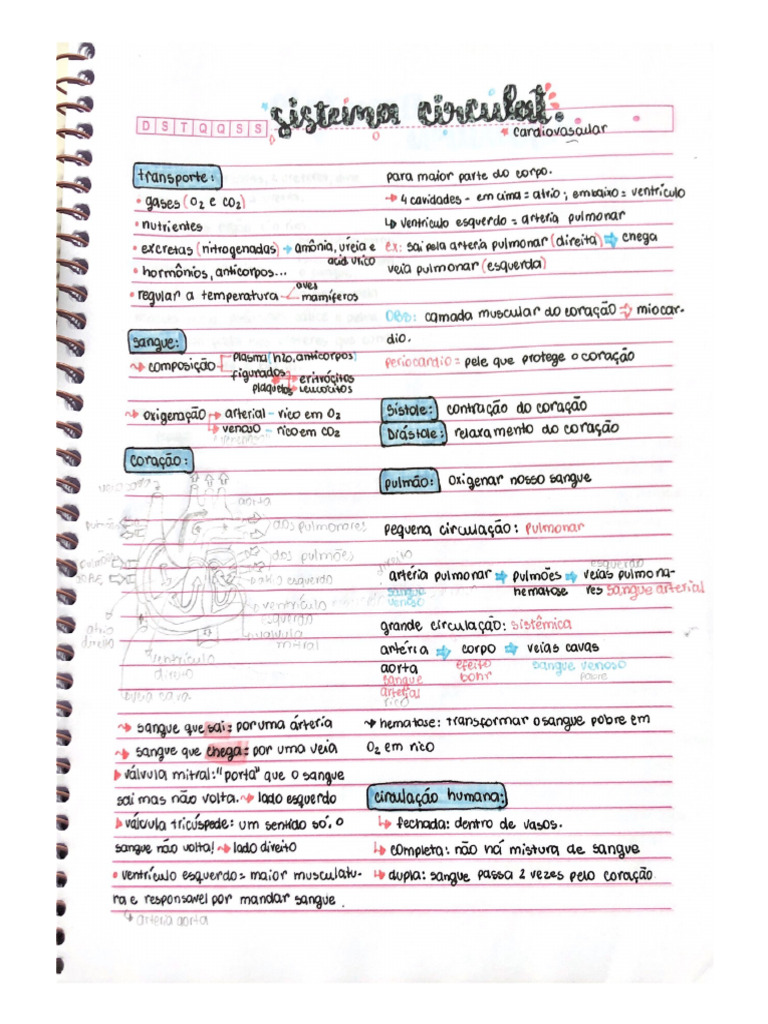 sistema circulat.
D S T Q Q S S
* cardiovascular
transporte:
• gases (O2 e CO2)
• nutrientes
• excretas (nitrogenadas) → amônia, uréia e
acid urico
• hormônios, anticorpos...
• regular a temperatura
aves
mamíferos
sangue:
→ composição
plasma (h2o, anticorpos)
figurados → eritrócitos
plaquetas leucócitos
→ oxigenação → arterial - rico em O2
→ venoso - rico em CO2
coração:
aorta
aos pulmonares
dos pulmões
átrio esquerdo
ventrículo
esquerdo
válvula
mitral
átrio
direito
ventrículo
direito
→ sangue que sai: por uma artéria
→ sangue que chega: por uma veia
válvula mitral: "porta" que o sangue
sai mas não volta. → lado esquerdo
válvula tricúspede: um sentido só, o
sangue não volta! → lado direito
• ventrículo esquerdo = maior musculatu-
ra e responsavel por mandar sangue.
↳ arteria aorta
para maior parte do corpo.
→ 4 cavidades - em cima = atrio ; embaixo = ventrículo
↳ ventrículo esquerdo = arteria pulmonar
ex: sai pela arteria pulmonar (direita) ⇒ chega
veia pulmonar (esquerda)
OBS: camada muscular do coração ⇒ miocar-
dio.
periocardio = pele que protege o coração
Sístole: contração do coração
Drástole: relaxamento do coração
pulmão: oxigenar nosso sangue
pequena circulação: pulmonar
direito esquerdo
artéria pulmonar ⇒ pulmões ⇒ veias pulmona-
sangue hematose res sangue arterial
venoso
grande circulação: sistêmica
artéria ⇒ corpo ⇒ veias cavas
aorta efeito sangue venoso
sangue bohr pobre
arterial
rico
→ hematase: transformar o sangue pobre em
O2 em rico
circulação humana:
↳ fechada: dentro de vasos.
↳ completa: não há mistura de sangue
↳ dupla: sangue passa 2 vezes pelo coração